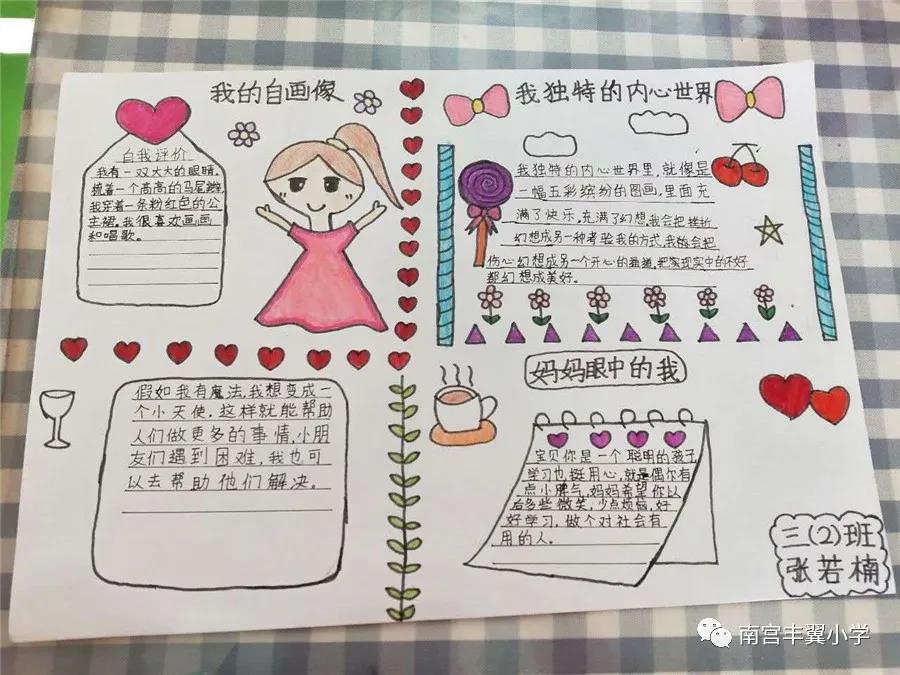 我的自画像
自我评价
我有一双大大的眼睛,
梳着一个高高的马尾辫,
我穿着一条粉红色的公
主裙。我很喜欢画画
和唱歌。
我独特的内心世界
我独特的内心世界里,就像是
一幅五彩缤纷的图画,里面充
满了快乐,充满了幻想。我会把挫折
幻想成另一种考验我的方式,我能会把
伤心幻想成另一个开心的,把实现实中的不好
都幻想成美好。
假如我有魔法,我想变成一
个小天使,这样就能帮助
人们做更多的事情,小朋
友们遇到困难,我也可
以去帮助他们解决。
妈妈眼中的我
宝贝你是一个聪明的孩子
学习也挺用心,就是偶尔有
点小脾气,妈妈希望你以
后多些微笑,少点烦恼,好
好学习,做个对社会有
用的人。
三(2)班
张若楠
南宫丰翼小学